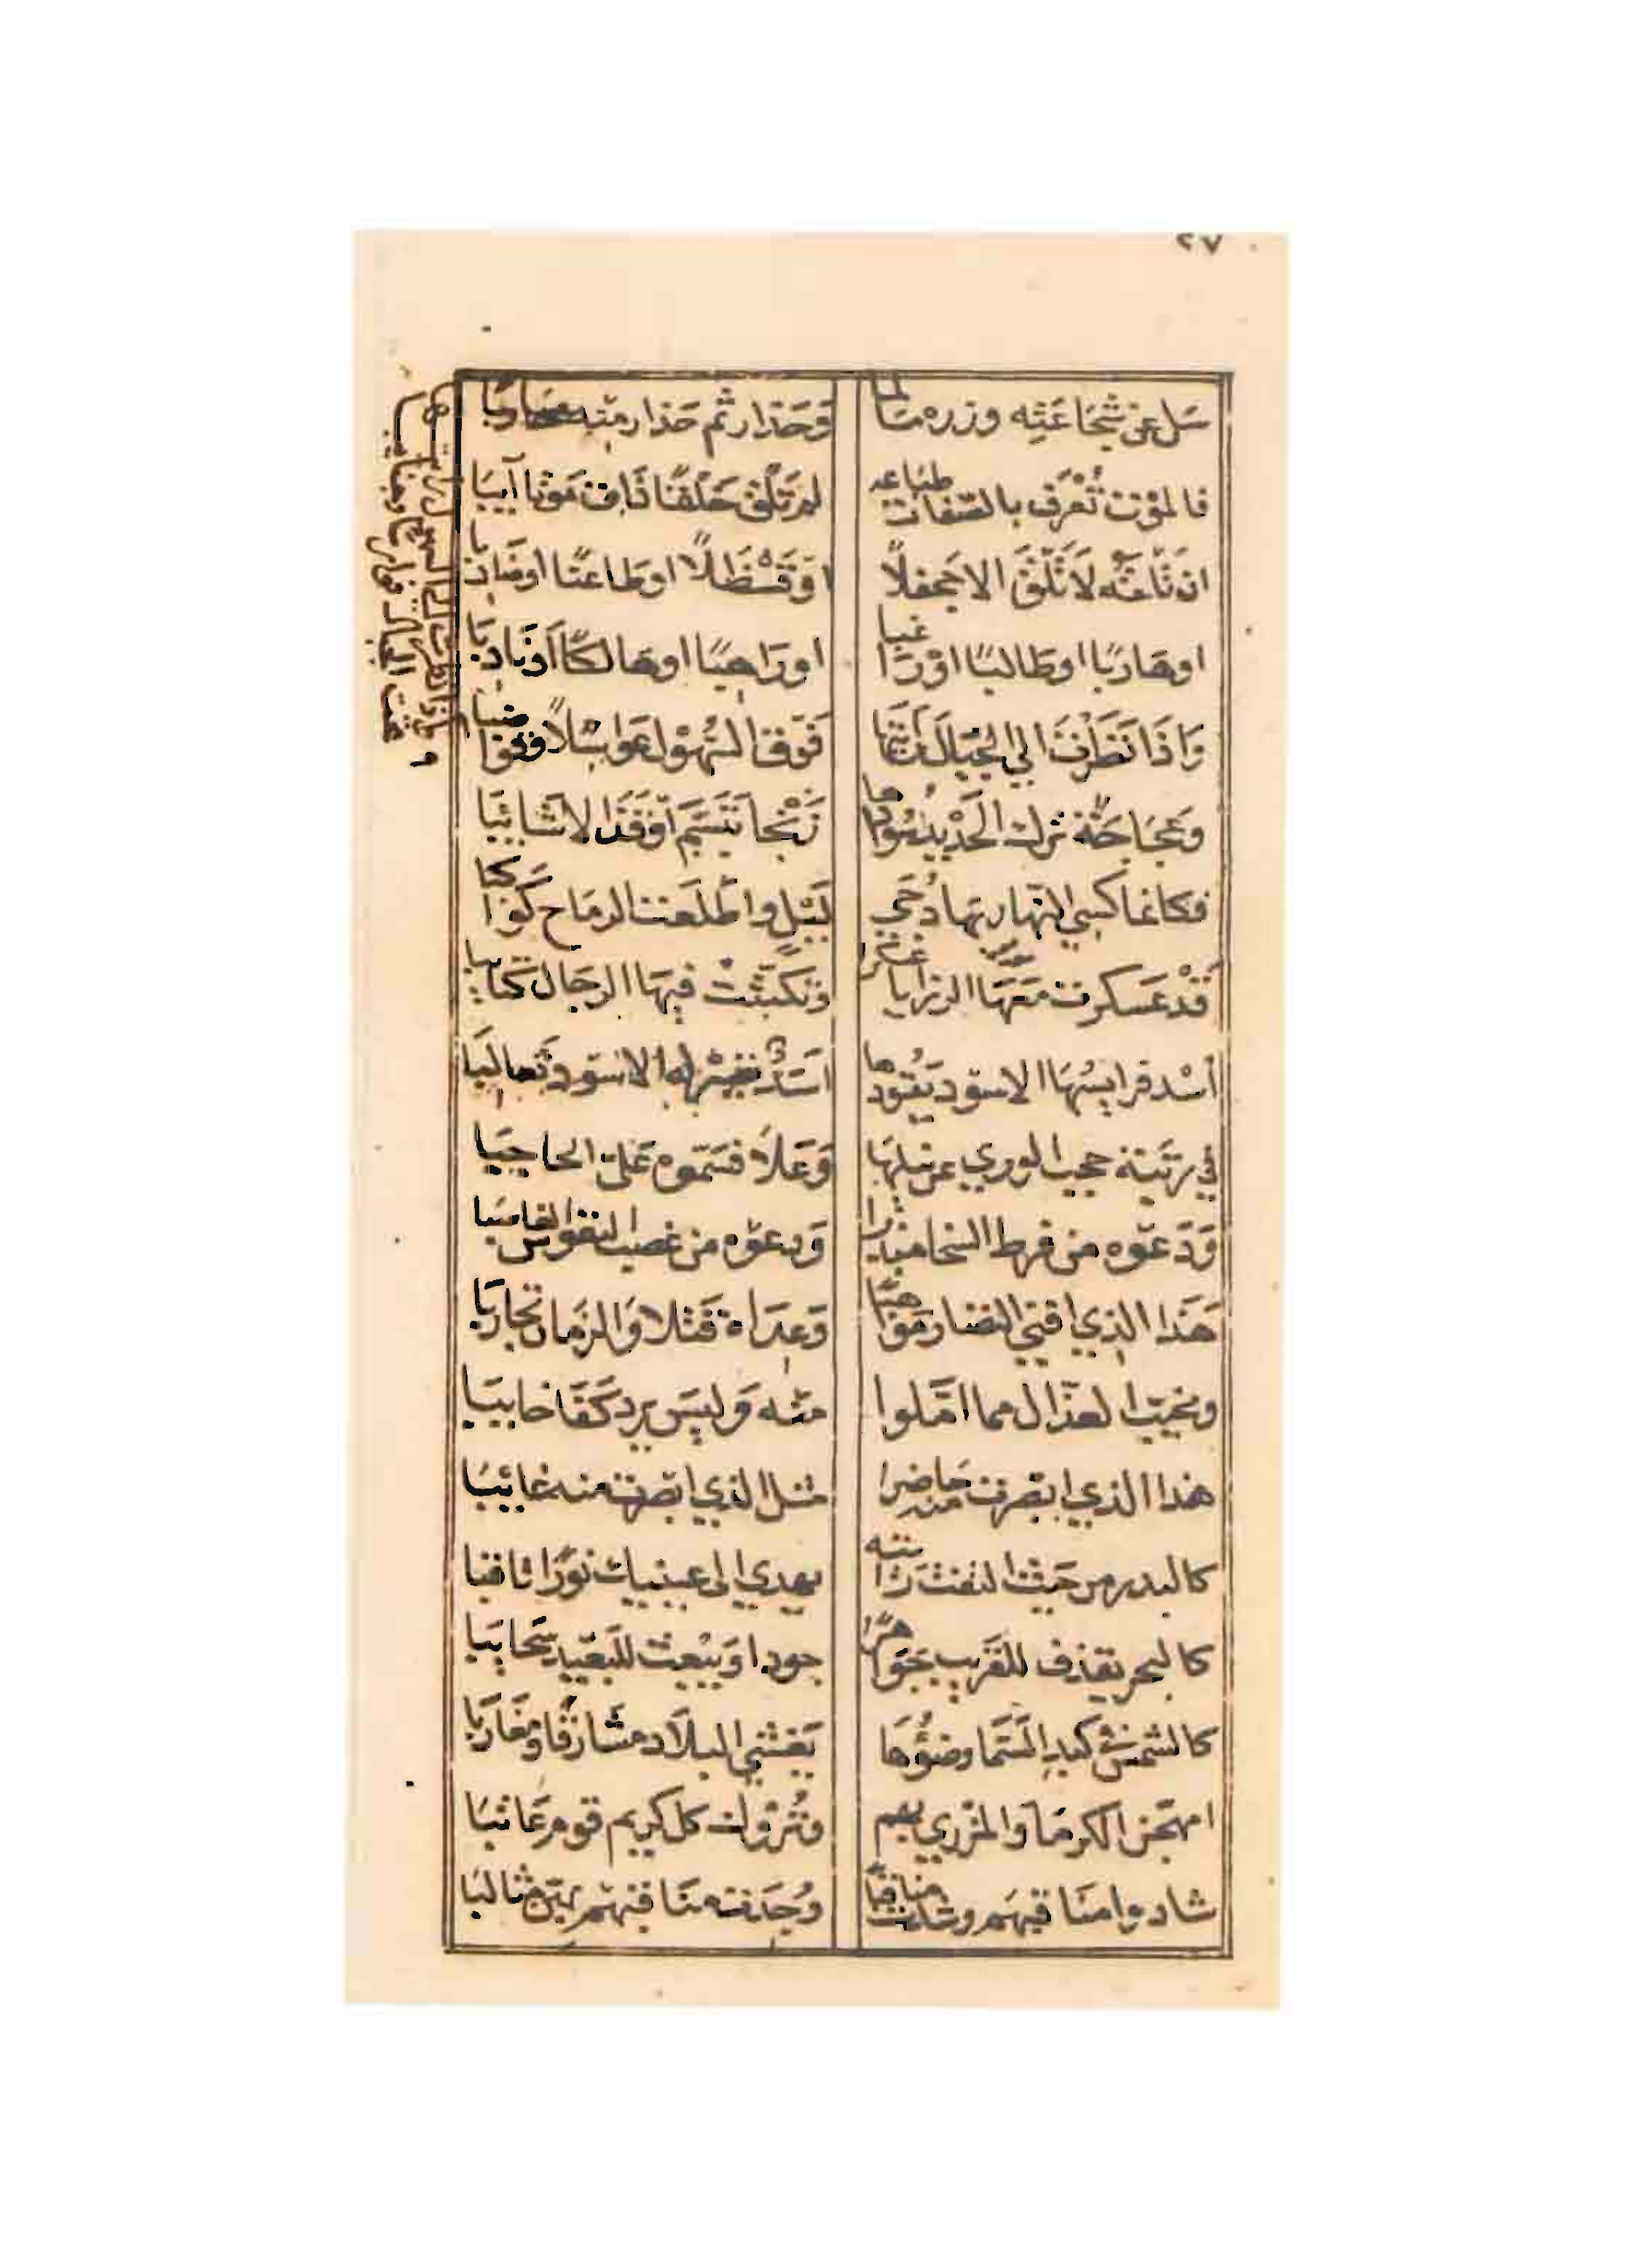 ٢٧
سَل عن شَجَاعَتِه وزره مسَالما وَحَذار ثم حَذار منه محاربا
فالموت تُعْرَف بالصّفات طبَاعه لم تَلْق خَلْقًا ذَاق مَوْتا آيبَا
ان تَلْقَه لَا تَلْقَ الا جَحفلًا اوْ قَسْطَلًا او طَاعنًا او ضَاربا
او هَاربًا او طَالبًا اوْ رَاغبا او رَاهبًا او هَالكًا اَوْ نَادبَا
وَاذَا نَظَرْتَ الي الجبَال رَأيتَها فَوْقَ السُّهُول عَوَاسِلًا وقواضبا
وعَجَاجَةً ترك الحَدْيد سَوادها زَنْجا تَبَسَّمُ أوْ قَذَالا شَائبَا
فكانما كسي النهار بها دُجَي لَيْل واطْلَعَت الرمَاح كَوَاكبا
قَدْ عَسكرت مَعَهَا الرزايا عسكرا وَتَكَتَّبَتْ فيهَا الرجَال كتايبا
اُسْد فرايسُهَا الاسود يَقُودُها اسَدٌ تصيْر له الاسود ثَعالبَا
في رتْبَة حجب الوري عن نيلهَا وَعَلَا فسَمّوه عَليّ الحاجبَا
وَدَعَوْه من فرط السخا مبذرا وَدعَوْه من غصب النفوس الغاصبَا
هَذا الذي افني النضار مَوَاهبًا وَعِدَاه قَتْلا وَالزمَان تجاربَا
ومخيّب العذّال مما امّلوا منْه وَليسَ يرد كَفّا خايبَا
هذا الذي ابْصَرت منه حَاضرا مثل الذي ابْصَرت منه غائبَا
كالبدر من حَيْث التفَتّ رَاَيته يهدي الي عينيك نوْرًا ثاقبا
كالبحر يقذف للقَريب جَوَاهرًا جودا وَيبْعث للبَعيْد سَحايبَا
كالشمْس في كبد السَّمَا وضوْؤهَا يَغْشي البلَاد مشارقًا ومغَاربا
امهَجّن الكرمَا وَالمزْري بهم وتُرُوك كل كريم قوم عَاتبَا
شادوا منَاقبَهم وشدت مناقبًا وُجدت منَاقبهم بهنّ مثالبَا